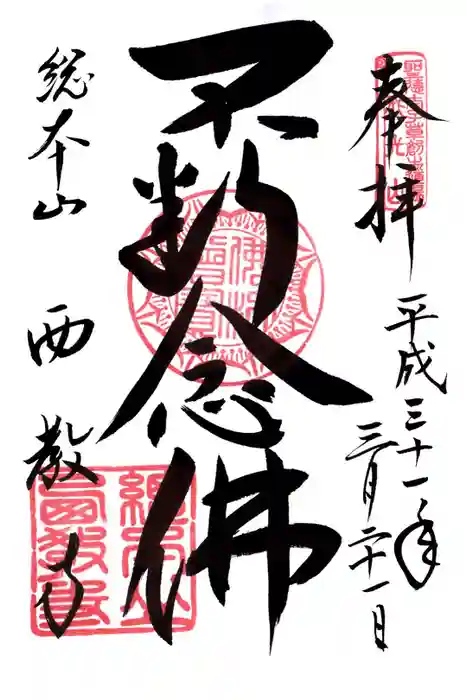 奉拝
平成三十一年
三月二十一日
不断念佛
総本山
西教寺